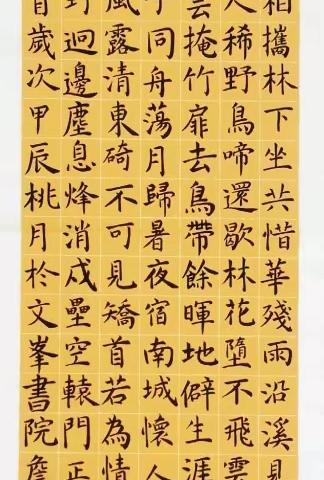 相攜林下坐共惜華殘雨沿溪見
人稀野鳥啼還歇林花墮不飛雲
雲掩竹扉去鳥帶餘暉地僻生涯
同舟蕩月歸暑夜宿南城懷人
風露清東碕不可見矯首若為情
野迥邊塵息烽消戍壘空轅門正
首歲次甲辰桃月於文峯書院詹